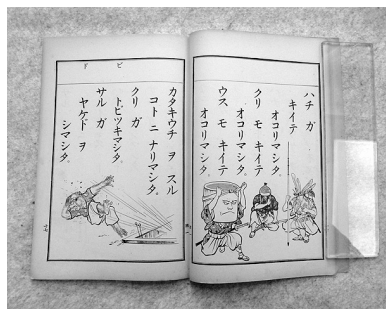 ハチ ガ
キイテ
オコリマシタ。
クリ モ キイテ
オコリマシタ。
ウス モ キイテ
オコリマシタ。
カタキウチ ヲ スル
コトニ ナリマシタ。
クリ ガ
トビツキマシタ。
サル ガ
ヤケド ヲ
シマシタ。
ビ
ド